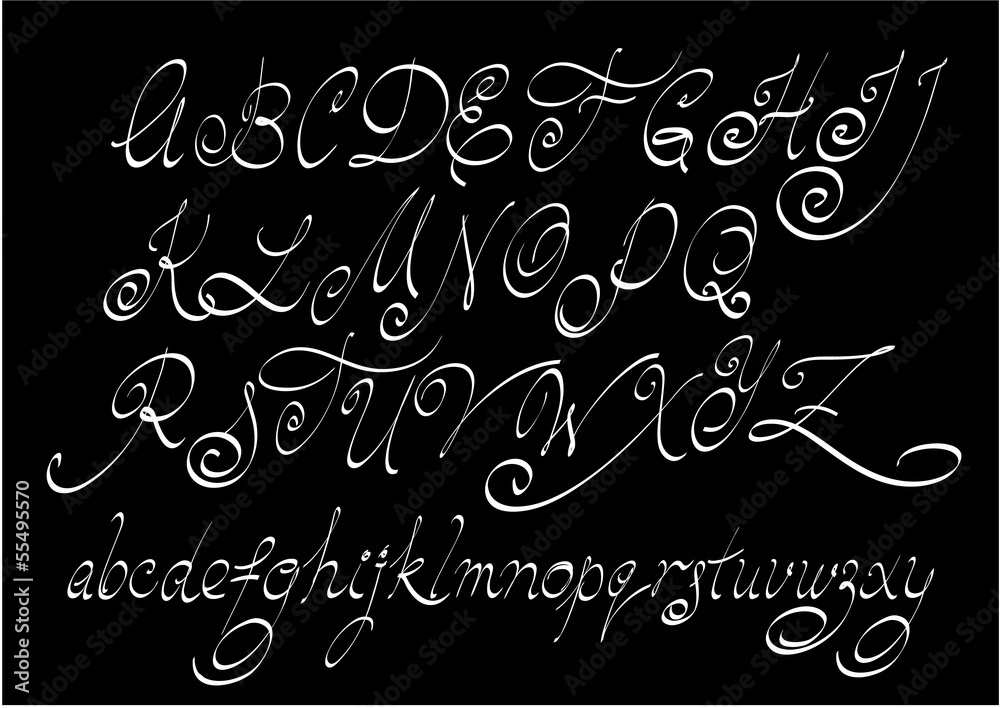 ABCDEFGHIJ
KLMNOPQ
RSTUVWXYZ
abcdefghijklmnopqrstuvwzxy
Adobe Stock | #55495570